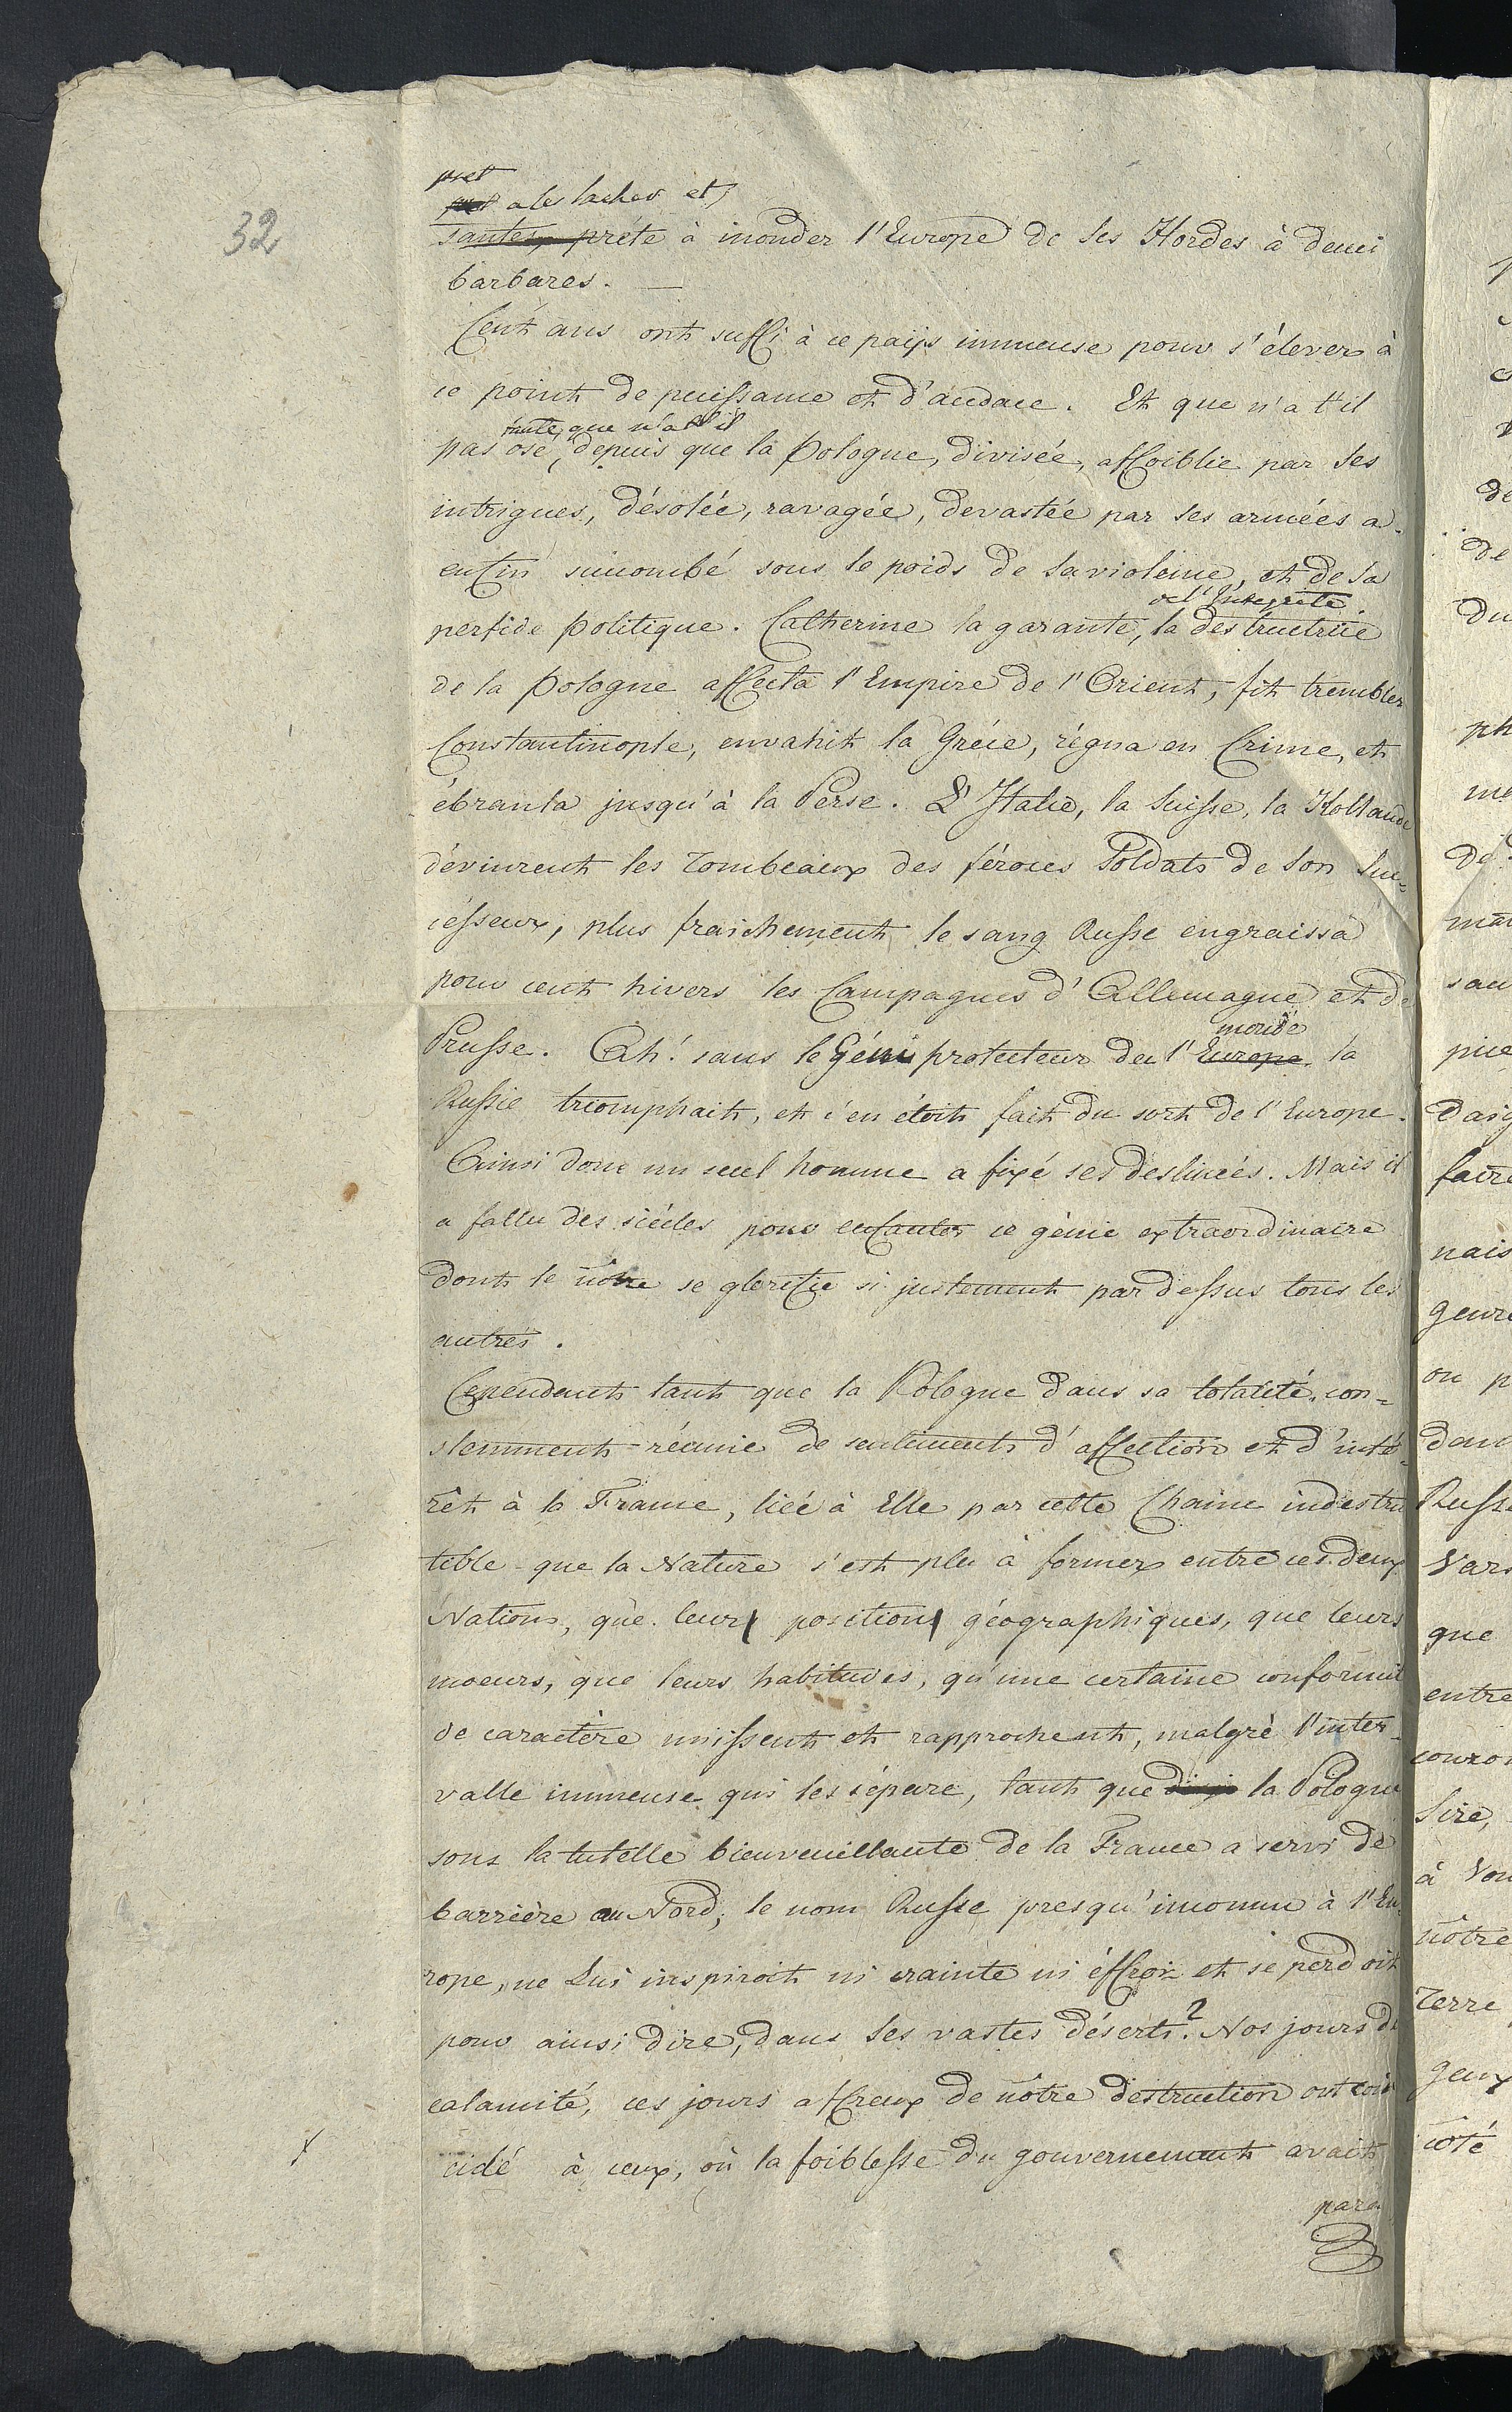 32
pret
a les lacher et
santes, prête à inonder l'Europe de ses Hordes à demi
barbares. —
Cent ans ont suffi à ce païs immense pour s'élever à
ce point de puissance et d'audace. Et que n'a t'il
tenté, que n'a t'il
pas osé, depuis que la Pologne, divisée, affoiblie par ses
intrigues, désolée, ravagée, devastée par ses armées a
enfin succombé sous le poids de sa violence, et de sa
de l'Integrité
perfide politique. Catherine la garante, la destructrice
de la Pologne affecta l'Empire de l'Orient, fit trembler
Constantinople, envahit la Gréce, régna en Crimé, et
ébranla jusqu'à la Perse. L'Italie, la Suisse, la Hollande
dévinrent les Tombeaux des féroces Soldats de son Suc-
cesseur, plus fraichement le sang Russe engraissa
pour cent hivers les Campagnes d'Allemagne et de
monde
Prusse. Ah! sans le Génie protecteur de l'Europe la
Russie triomphait, et c'en étoit fait du sort de l'Europe.
Ainsi donc un seul homme a fixé ses destinées. Mais il
a fallu des siécles pour enfanter ce génie extraordinaire
dont le nôtre se glorifie si justement par dessus tous les
autres.
Cependant tant que la Pologne dans sa totalité, con-
stemment réunie de sentiments d'affection et d'inté-
rêt à la France, liée à Elle par cette Chaine indestru
tible que la Nature s'est plu à former entre ces deux
Nations, que leur position géographiques, que leurs
moeurs, que leurs habitudes, qu'une certaine conformit
de caractère unissent et rapprochent, malgré l'inter-
valle immense qui les sépare, tant que la Pologne
sous la tutelle bienveuillante de la France a servi de
barrière au Nord, le nom Russe presqu'inconnu à l'Eu-
rope, ne Lui inspiroit ni crainte ni éffroi et se perdoit
pour ainsi dire, dans ses vastes déserts? Nos jours de
calamité, ces jours affreux de nôtre destruction ont coin
cidé à ceux, où la foiblesse du gouvernement avait
para